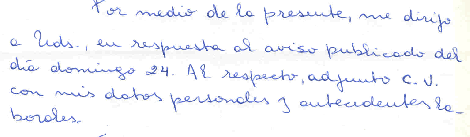 Por medio de la presente, me dirijo
a Uds., en respuesta al aviso publicado del
día domingo 24. Al respecto, adjunto C.V.
con mis datos personales y antecedentes la-
borales.